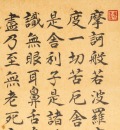 摩訶般若波羅
度一切苦厄舍
是舍利子是諸
識無眼耳鼻舌
盡乃至無老死